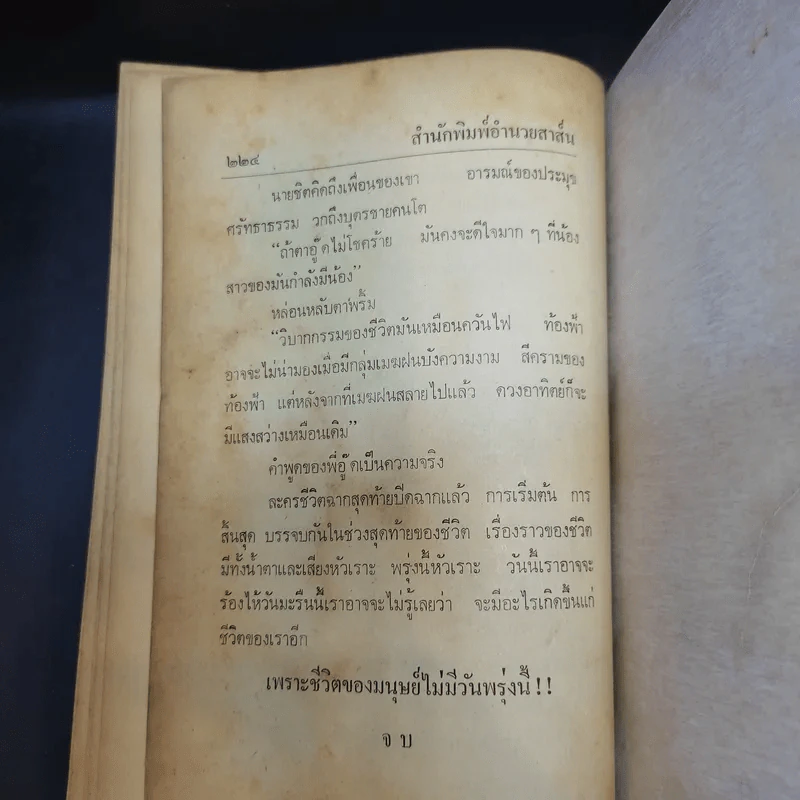 สำนักพิมพ์อำนวยสาส์น
๒๒๔
นายชิตคิดถึงเพื่อนของเขา อารมณ์ของประมุข
ศรัทธาธรรม วกถึงบุตรชายคนโต
“ถ้าตาอู๊ดไม่โชคร้าย มันคงจะดีใจมาก ๆ ที่น้อง
สาวของมันกำลังมีน้อง”
หล่อนหลับตาพริ้ม
“วิบากกรรมของชีวิตมันเหมือนควันไฟ ท้องฟ้า
อาจจะไม่น่ามองเมื่อมีกลุ่มเมฆฝนบังความงาม สีครามของ
ท้องฟ้า แต่หลังจากที่เมฆฝนสลายไปแล้ว ดวงอาทิตย์ก็จะ
มีแสงสว่างเหมือนเดิม”
คำพูดของพี่อู๊ดเป็นความจริง
ละครชีวิตฉากสุดท้ายปิดฉากแล้ว การเริ่มต้น การ
สิ้นสุด บรรจบกันในช่วงสุดท้ายของชีวิต เรื่องราวของชีวิต
มีทั้งน้ำตาและเสียงหัวเราะ พรุ่งนี้หัวเราะ วันนี้เราอาจจะ
ร้องไห้วันมะรืนนี้เราอาจจะไม่รู้เลยว่า จะมีอะไรเกิดขึ้นแก่
ชีวิตของเราอีก
เพราะชีวิตของมนุษย์ไม่มีวันพรุ่งนี้!!
จบ